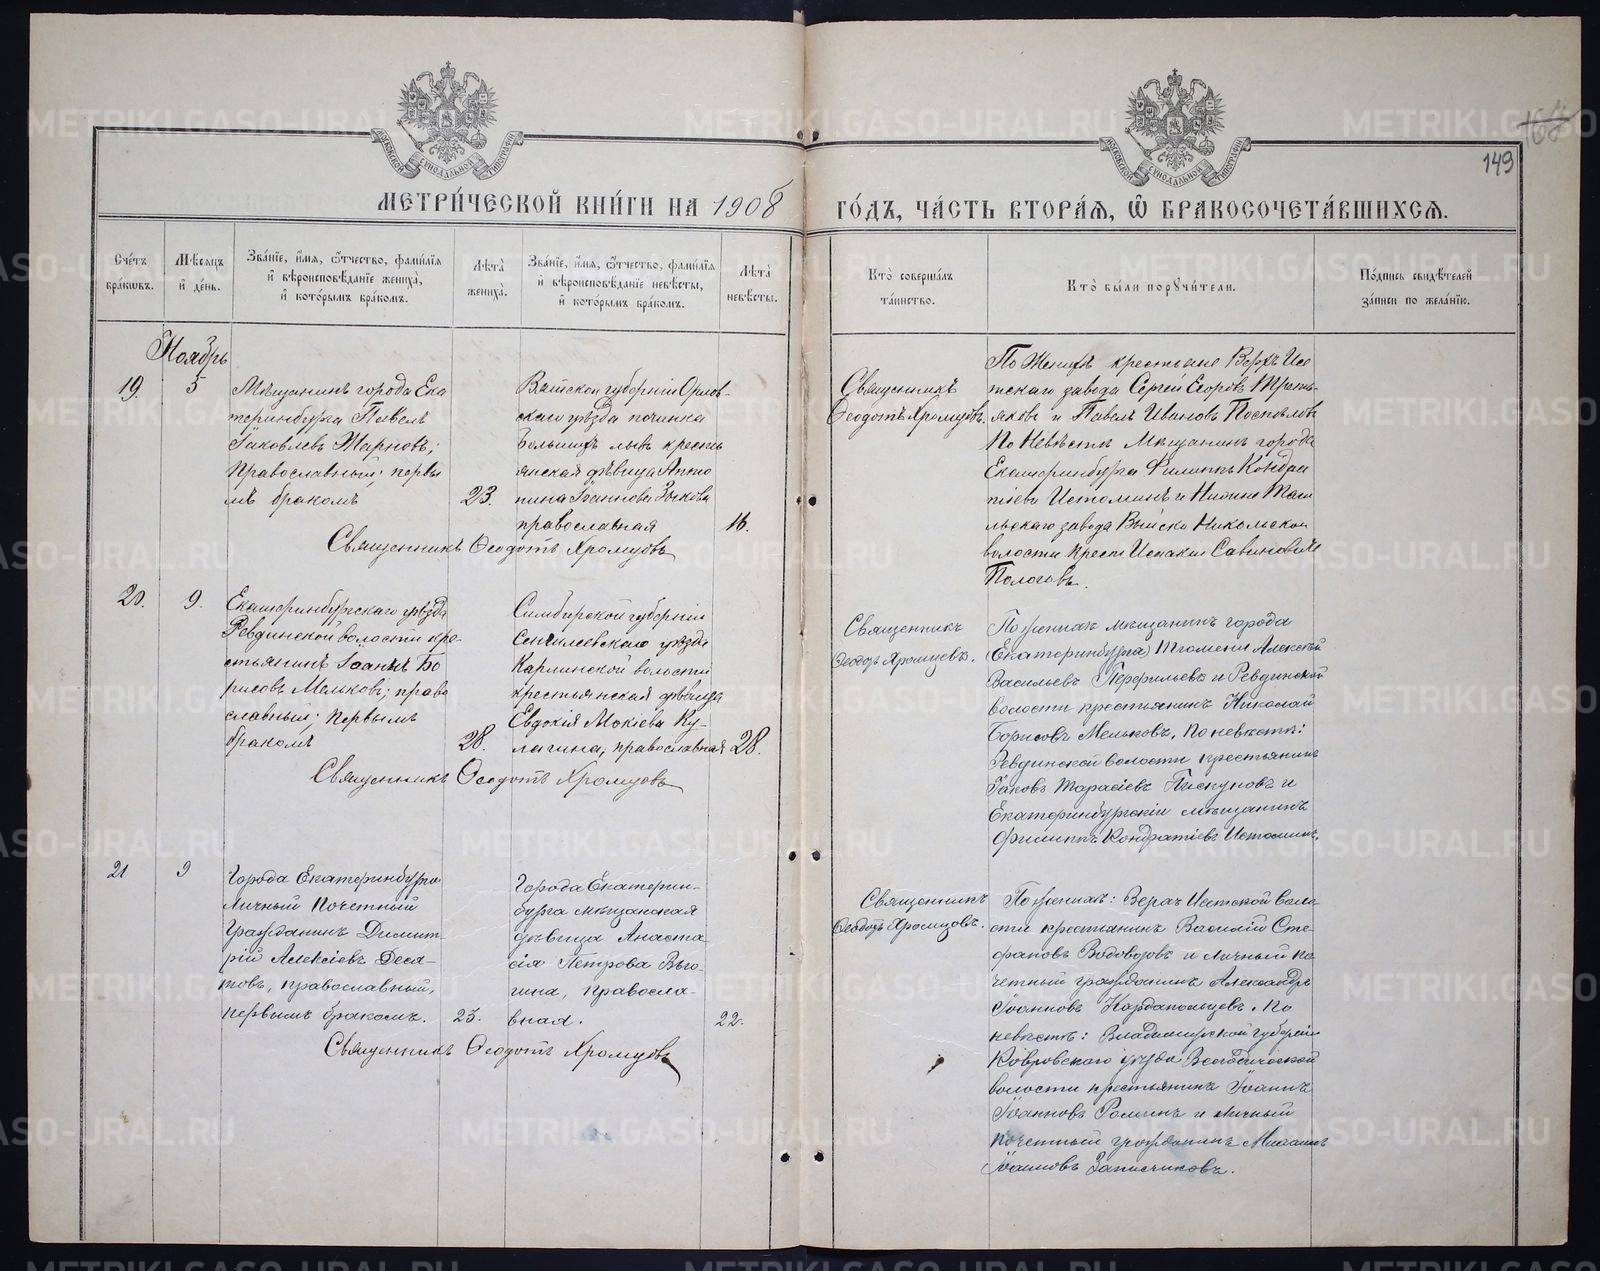 149
МЕТРИ́ЧЕСКОЙ КНИ́ГИ НА 1908 ГО́ДЪ, ЧА́СТЬ ВТОРА́Я, Ѿ БРАКОСОЧЕТА́ВШИХСЯ.
Сче́тъ бра́кѡвъ.
Мѣ́сяцъ и҆ де́нь.
Зва́нїе, и҆́мя, ѻ҆́тчество, фами́лїя и҆ вѣроисповѣ́данїе жениха̀, и҆ кото́рымъ бра́комъ.
Лѣ́та жениха̀.
Зва́нїе, и҆́мя, ѻ҆́тчество, фами́лїя и҆ вѣроисповѣ́данїе невѣ́сты, и҆ кото́рымъ бра́комъ.
Лѣ́та невѣ́сты.
Кто̀ соверша́лъ та́инство.
Кто̀ бы́ли порꙋчи́тели.
По́дпись свидѣ́телей за́писи по жела́нїю.
Ноябрь
19.
5
Мѣщанинъ города Ека
теринбурга Павелъ
Іаковлевъ Жарновъ;
православный; первы
мъ бракомъ
23.
Вятской губерніи Орлов-
скаго уѣзда починка
крестья
янская дѣвица Анто
нина Іоаннова Зыкова
православная
16.
Священникъ
Ѳеодотъ Хромцовъ.
По Женихѣ крестьяне Верхъ Исе
тскаго завода Сергей Егоровъ Треть-
яковъ и Павелъ Ивановъ Поспѣловъ
По Невѣстѣ Мѣщанинъ города
Екатеринбурга Филиппъ Кондра
тіевъ Истоминъ и Нижне Таги
льскаго завода Выйско Никольской
волости крест. Исаакій Савиновъ
Пологовъ.
Священникъ Ѳеодотъ Хромцовъ
20.
9.
Екатеринбургскаго уѣзда
Ревдинской волости кре-
стьянинъ Іоаннъ Бо
рисовъ Мелковъ; право
славный; первымъ
бракомъ
28.
Симбирской губерніи
Сенгилеевскаго уѣзда
Карлинской волости
крестьянская дѣвица
Евдокія Мокіева Ку-
лагина, православная
28.
Священникъ
Ѳеодотъ Хромцовъ.
По женихѣ мѣщанинъ города
(Екатеринбурга) Тюмени Алексѣй
Васильевъ Перфильевъ и Ревдинской
волости крестьянинъ Николай
Борисовъ Мельковъ, по невѣстѣ:
Ревдинской волости крестьянинъ
Іаковъ Тарасіевъ Пискуновъ и
Екатеринбургскій мѣщанинъ
Филиппъ Кондратіевъ Истоминъ.
Священникъ Ѳеодотъ Хромцовъ
21
9
Города Екатеринбурга
личный почетный
гражданинъ Димит-
рій Алексіевъ Деся-
товъ, православный,
первымъ бракомъ.
25.
Города Екатерин-
бурга мѣщанская
дѣвица Анаста
сія Петрова Вью-
гина, правосла-
вная.
22.
Священникъ
Ѳеодотъ Хромцовъ.
По женихѣ: Верхъ Исетской воло-
сти крестьянинъ Василій Сте-
фановъ Водоводовъ и личный по-
четный гражданинъ Александръ
Іоанновъ Кардапольцевъ. По
невѣстѣ: Владимірской губерніи
Ковровскаго уѣзда
волости крестьянинъ Іоаннъ
Іоанновъ Роминъ и личный
почетный гражданинъ Михаилъ
Іоанновъ
Священникъ Ѳеодотъ Хромцовъ